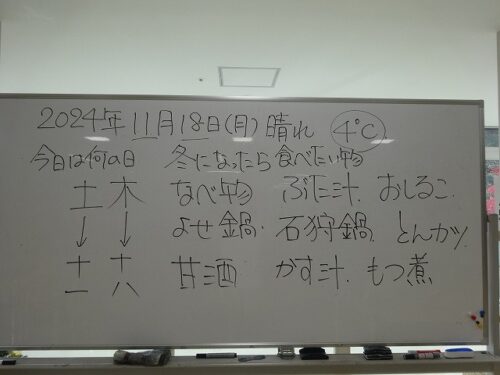 2024年 11月18日(月) 晴れ 4℃
今日は何の日 冬になったら食べたい物
土 木 なべ物 ぶた汁. おしるこ.
↓ ↓ よせ鍋. 石狩鍋. とんカツ.
十一 十八 甘酒 かす汁. もつ煮